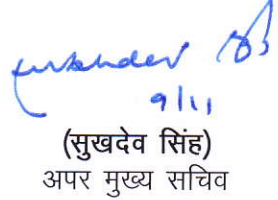 9/11
(सुखदेव सिंह)
अपर मुख्य सचिव